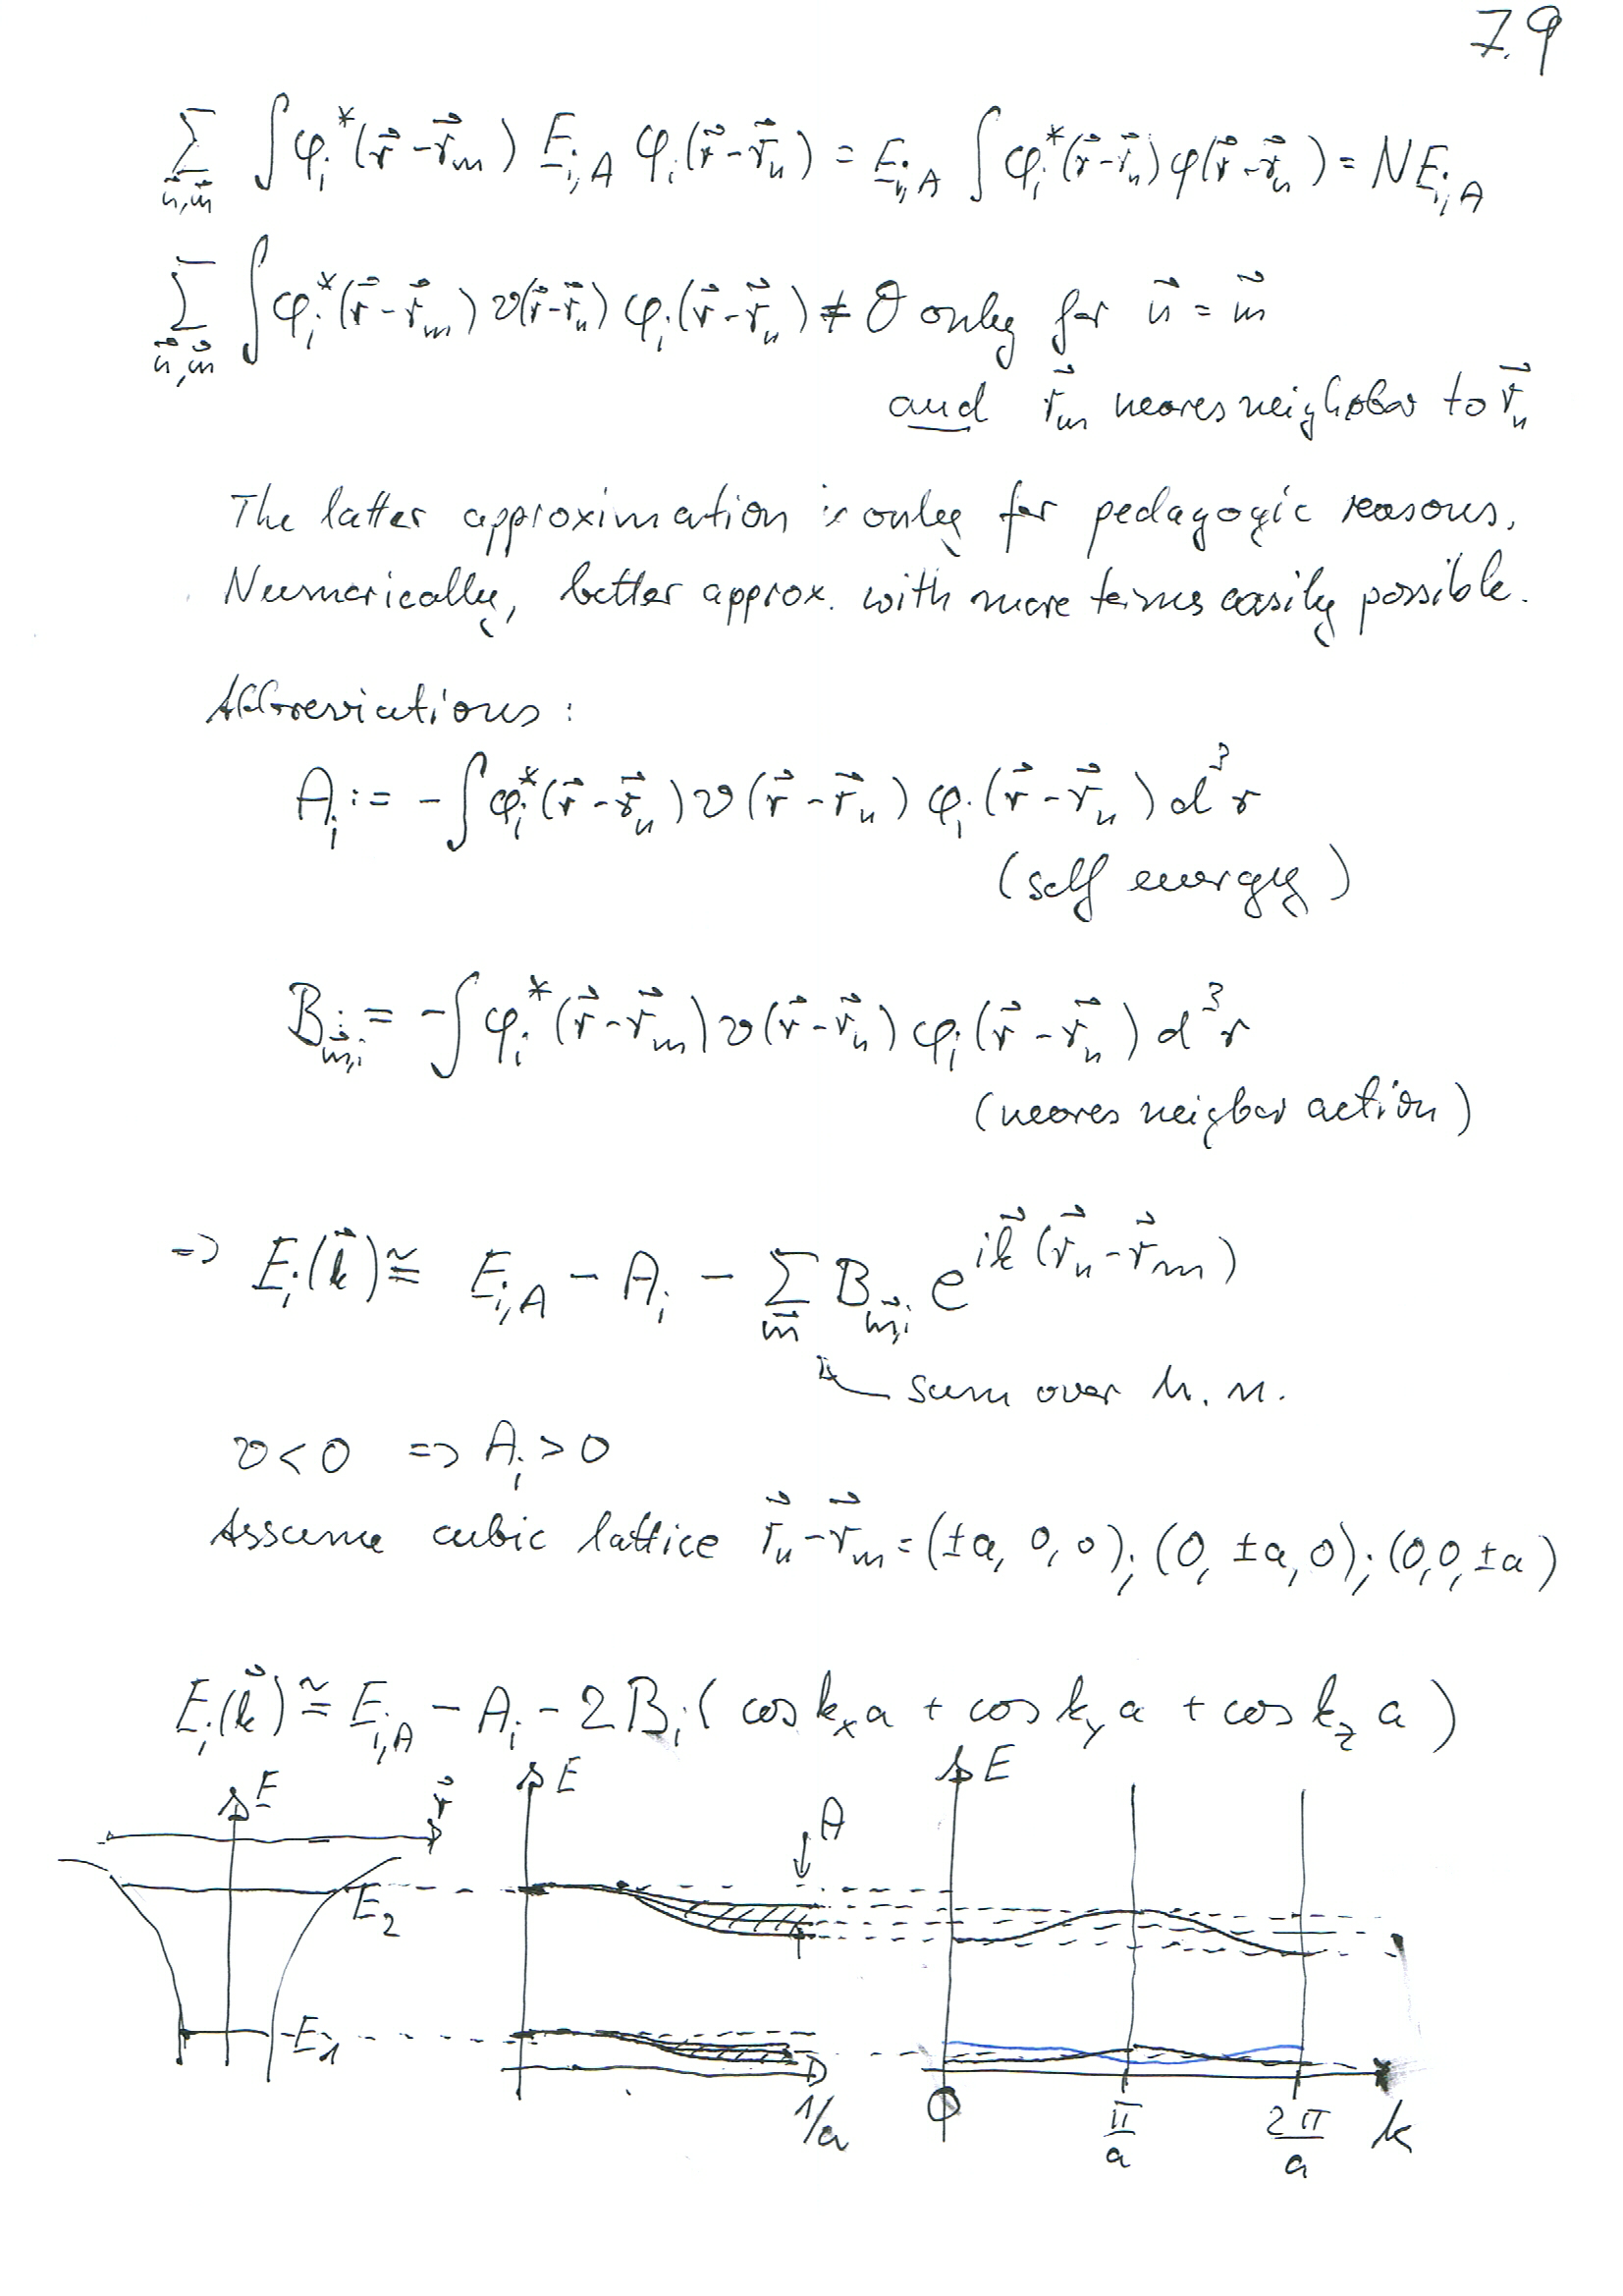 7.9
∑_{n⃗,m⃗} ∫φ_i*(r⃗-r⃗_m) E_{i,A} φ_i(r⃗-r⃗_n) = E_{i,A} ∫φ_i*(r⃗-r⃗_n) φ(r⃗-r⃗_n) = N E_{i,A}
∑_{n⃗,m⃗} ∫φ_i*(r⃗-r⃗_m) v(r⃗-r⃗_n) φ_i(r⃗-r⃗_n) ≠ 0 only for n⃗ = m⃗
and r⃗_m neares neighbor to r⃗_n
The latter approximation is only for pedagogic reasons.
Numerically, better approx. with more terms easily possible.
Abbreviations:
A_i := -∫φ_i*(r⃗-r⃗_n) v(r⃗-r⃗_n) φ_i(r⃗-r⃗_n) d³r
(self energy)
B_{m⃗,i} = -∫φ_i*(r⃗-r⃗_m) v(r⃗-r⃗_n) φ_i(r⃗-r⃗_n) d³r
(neares neigbor action)
=> E_i(k⃗) ≅ E_{i,A} - A_i - ∑_{m⃗} B_{m⃗,i} e^{ik⃗(r⃗_n-r⃗_m)}
sum over n.n.
v<0 => A_i > 0
Assume cubic lattice r⃗_n-r⃗_m = (±a, 0, 0); (0, ±a, 0); (0,0,±a)
E_i(k⃗) ≅ E_{i,A} - A_i - 2B_i( cos k_x a + cos k_y a + cos k_z a )
E r⃗ E A E
E_2
E_1
1/a 0 π/a 2π/a k